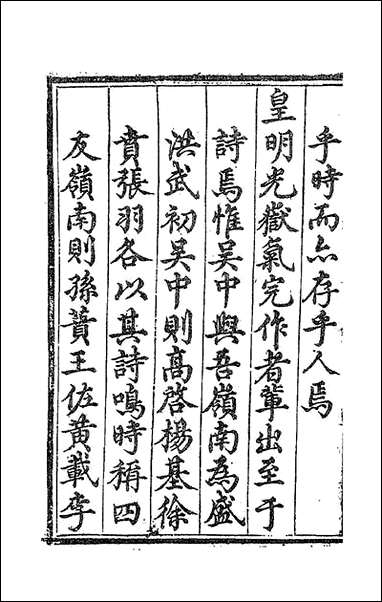 乎時而亦存乎人焉
皇明光嶽氣完作者輩出至于
詩焉惟吳中與吾嶺南為盛
洪武初吳中則髙啓楊基徐
賁張羽各以其詩鳴時稱四
友嶺南則孫蕡王佐黄哉李